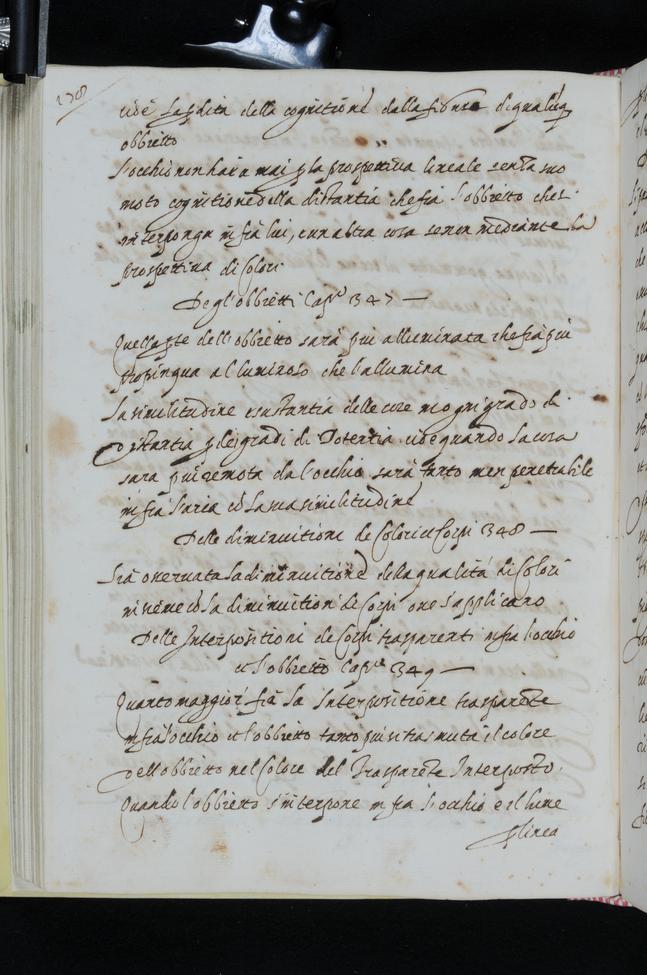 178
cioè la pdita della cognitione dalla figura di qualuq
obbietto
L'occhio non harà mai p la prospettiva lineale senza suo
moto cognitione della distantia che fia l'obbietto che s'
interponga infra lui, e un altra cosa senon mediante la
prospettiva di colori
Degl'obbietti Cap.º 347 —
Quella pte dell'obbietto sarà piu alluminata che fia piu
propinqua al luminoso che l'allumina
La similitudine e sustantia delle cose in ogni grado di
Distantia p de i gradi di Potentia cioè quando la cosa
sara piu remota dal'occhio sarà tanto men penetrabile
infra l'aria cō la sua similitudine
Delle diminuitioni de Colori e Corpi 348 —
Sia osservata la diminuitione della qualità di Colori
insieme cō la diminuitioni de Corpi ove s'applicano
Delle Interpositioni de Corpi trasparenti infra l'occhio
et l'obbietto Cap.º 349 —
Quanto maggiori fia la Interpositione trasparēte
infra l'occhio et l'obbietto tanto piu si trasmuta il colore
Dell'obbietto nel Colore del Trasparēte Interposto.
Quando l'obbietto s'interpone infra l'occhio e il lume
p linea